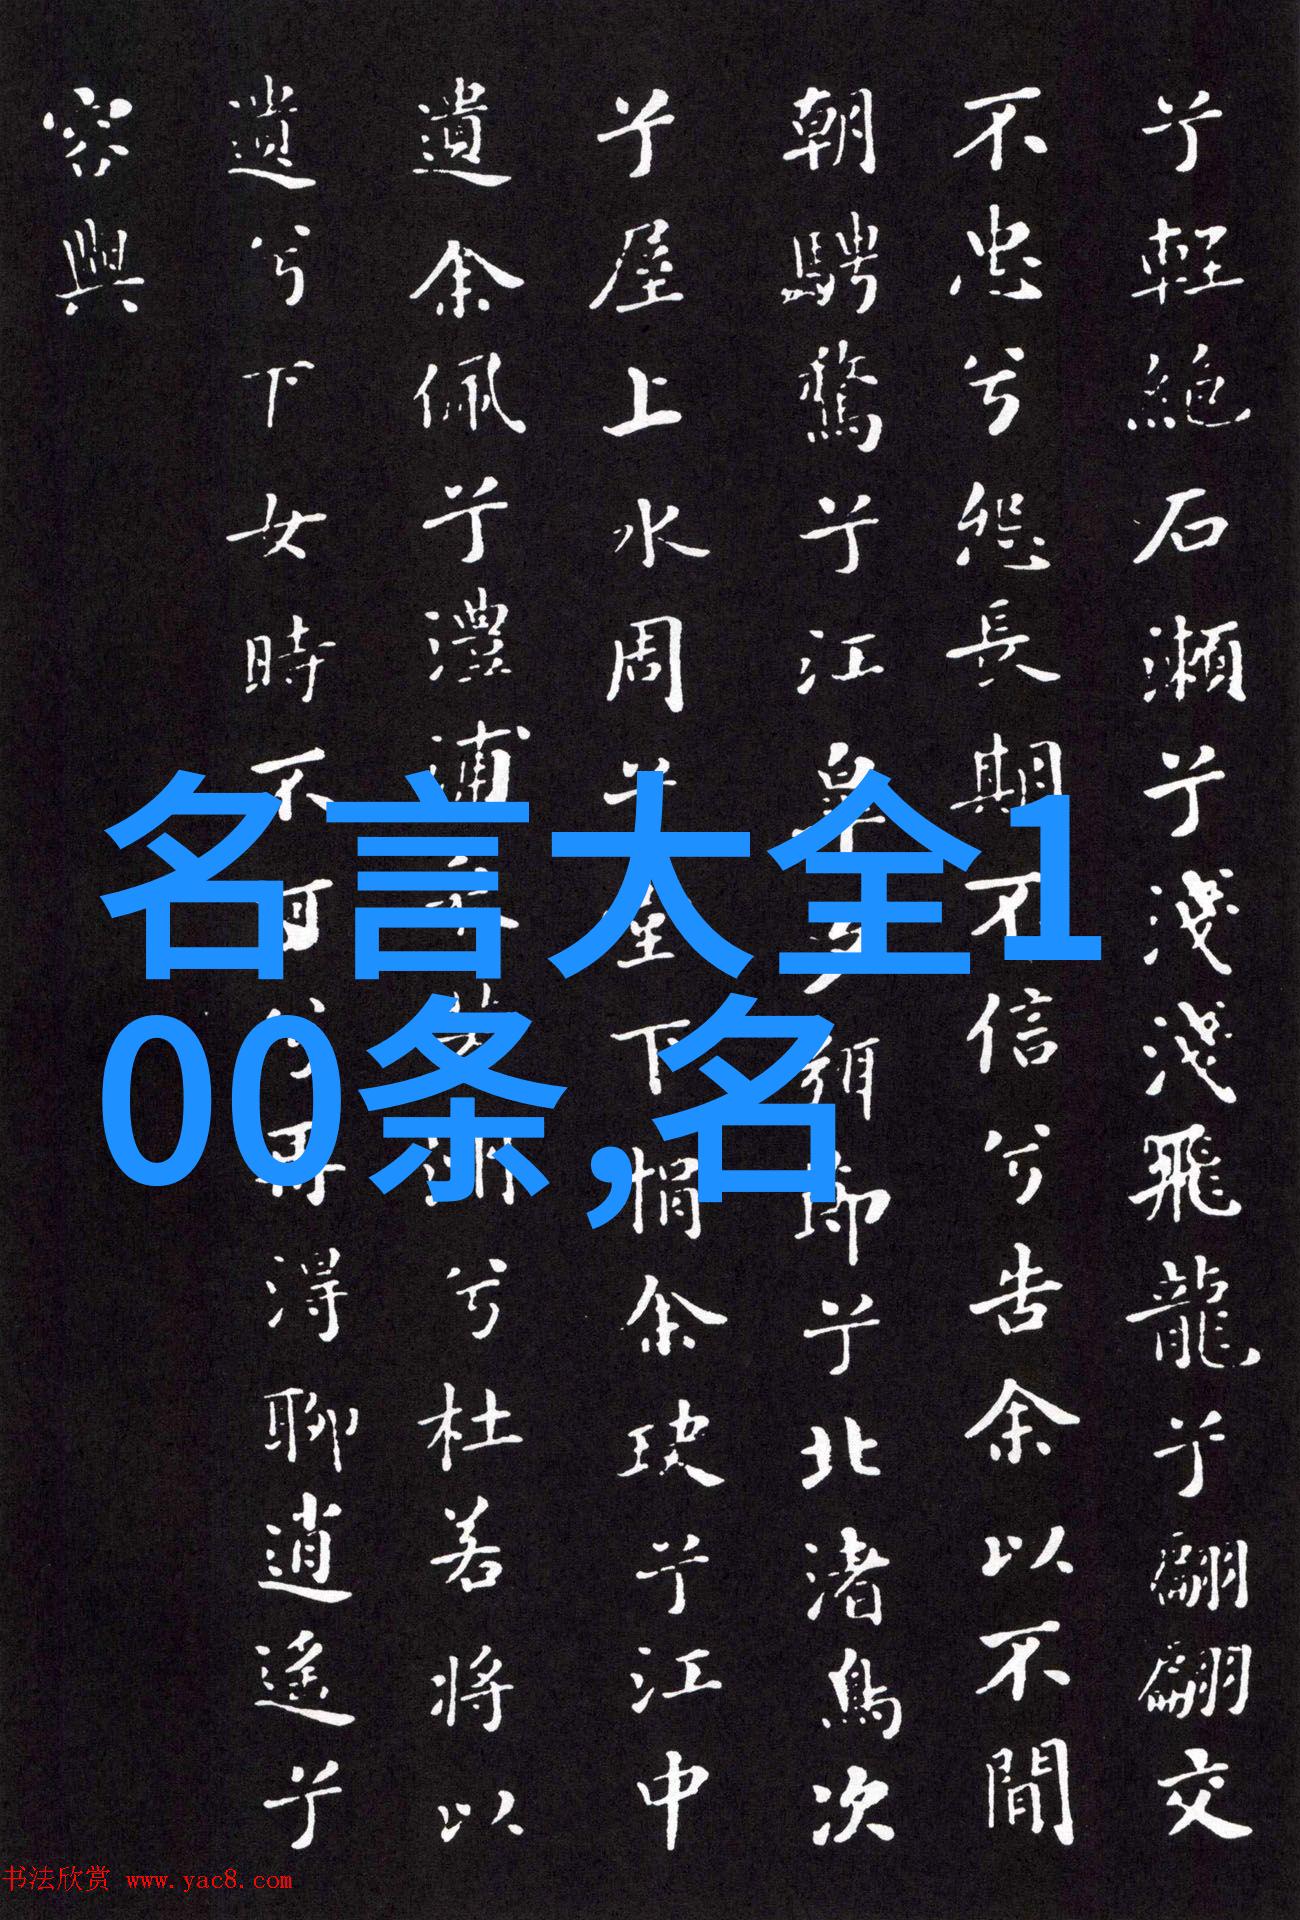 兮輕絶石瀨兮淺淺飛龍兮翩翩交
不忠兮怨長期不信兮告余以不閒
朝騁騖兮江皋夕弭節兮北渚鳥次
兮屋上水周兮堂下捐余玦兮江中
遺余佩兮澧浦采芳洲兮杜若將以
遺兮下女時不可兮再得聊逍遙兮
容與
名言大全1
00条,名
书法欣赏 www.yac8.com